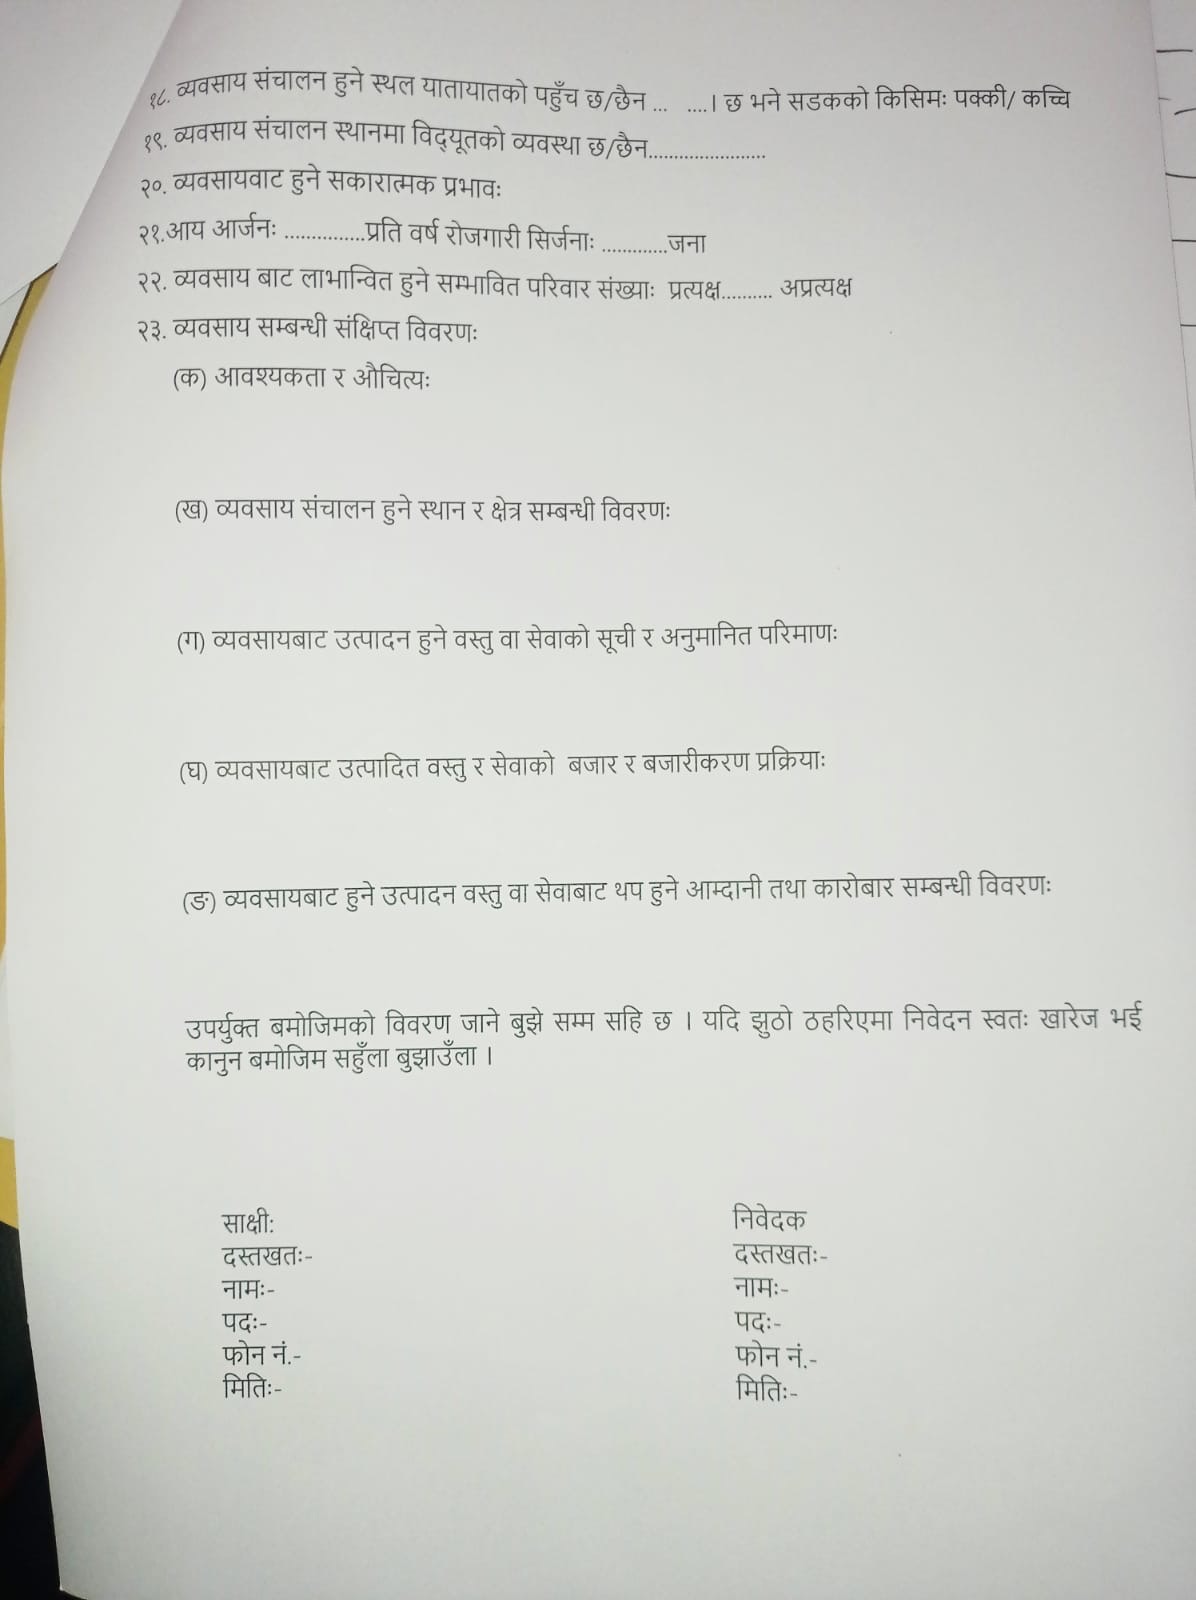 १८. व्यवसाय संचालन हुने स्थल यातायातको पहुँच छ/छैन ... ....। छ भने सडकको किसिमः पक्की/ कच्चि
१९. व्यवसाय संचालन स्थानमा विद्यूतको व्यवस्था छ/छैन.......................
२०. व्यवसायवाट हुने सकारात्मक प्रभावः
२१.आय आर्जनः ...............प्रति वर्ष रोजगारी सिर्जनाः ............जना
२२. व्यवसाय बाट लाभान्वित हुने सम्भावित परिवार संख्याः प्रत्यक्ष.......... अप्रत्यक्ष
२३. व्यवसाय सम्बन्धी संक्षिप्त विवरणः
(क) आवश्यकता र औचित्यः
(ख) व्यवसाय संचालन हुने स्थान र क्षेत्र सम्बन्धी विवरणः
(ग) व्यवसायबाट उत्पादन हुने वस्तु वा सेवाको सूची र अनुमानित परिमाणः
(घ) व्यवसायबाट उत्पादित वस्तु र सेवाको बजार र बजारीकरण प्रक्रियाः
(ङ) व्यवसायबाट हुने उत्पादन वस्तु वा सेवाबाट थप हुने आम्दानी तथा कारोबार सम्बन्धी विवरणः
उपर्युक्त बमोजिमको विवरण जाने बुझे सम्म सहि छ । यदि झुठो ठहरिएमा निवेदन स्वतः खारेज भई
कानुन बमोजिम सहुँला बुझाउँला ।
साक्षी: निवेदक
दस्तखतः- दस्तखतः-
नामः- नामः-
पदः- पदः-
फोन नं.- फोन नं.-
मितिः- मितिः-